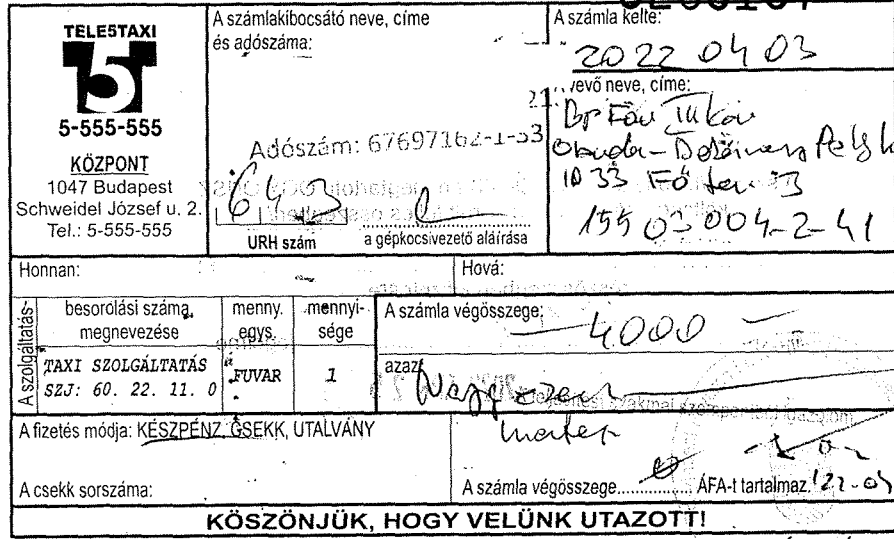 TELE5TAXI
5
5-555-555
KÖZPONT
1047 Budapest
Schweidel József u. 2.
Tel.: 5-555-555
A számlakibocsátó neve, címe
és adószáma:
Adószám: 67697162-1-33
643
URH szám
a gépkocsivezető aláírása
A számla kelte:
2022 04 03
vevő neve, címe:
Óbuda-
1033 Fő tér 3
15503004-2-41
Honnan:
Hová:
A szolgáltatás-
besorolási száma, megnevezése
menny. egys.
mennyi-sége
TAXI SZOLGÁLTATÁS
SZJ: 60. 22. 11. 0
FUVAR
1
A számla végösszege:
— 4000 —
azaz
A fizetés módja: KÉSZPÉNZ, CSEKK, UTALVÁNY
A csekk sorszáma:
A számla végösszege............... ÁFA-t tartalmaz.
KÖSZÖNJÜK, HOGY VELÜNK UTAZOTT!